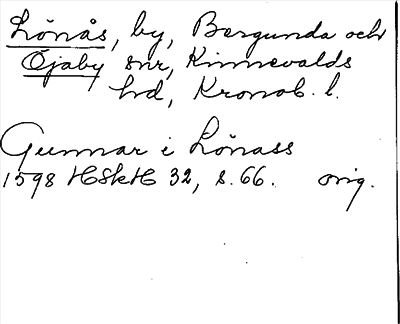 Lönås, by, Bergunda och
Öjaby snr, Kinnevalds
hrd, Kronob. l.
Gunnar i Lönass
1598 HSkH 32, s. 66. orig.